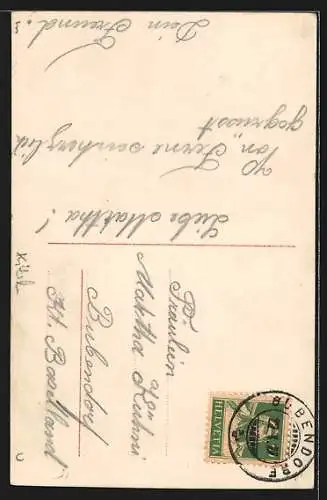 Liebe Martha!
von Ferne seiherzlich
gegrüsst
Dein Freund!
Fräulein
Martha Kühni
Bubendorf
Kt. Baselland
HELVETIA
BUBENDORF